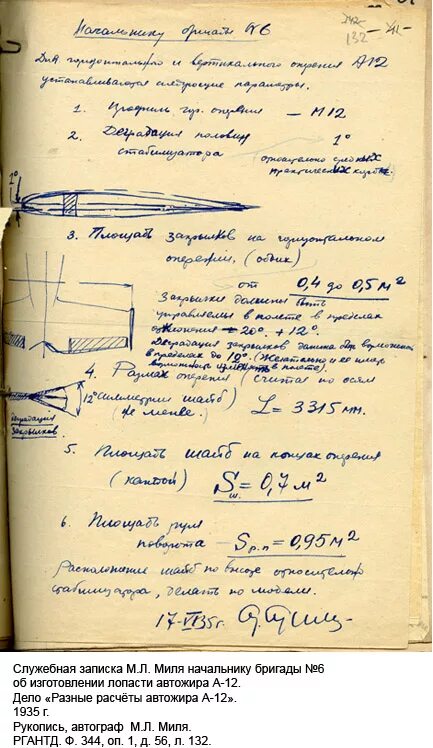 Начальнику бригады №6
132
Для горизонтального и вертикального оперения А12
устанавливаются следующие параметры.
1. Профиль гор. оперения — М12
2. Деградация половин стабилизатора 1°
относительно средних
практических хорд.
1°
3. Площадь закрылков на горизонтальном
оперении. (обоих)
от 0,4 до 0,5 м²
Закрылки должны быть
управляемы в полете в пределах
отклонения – 20° + 12°.
Деградация закрылков должна быть возможна
в пределах до 12°. (Желательно и ее иметь
в полете).
4. Размах оперения (считая по осям
симметрии шайб) L = 3315 мм.
не менее.
12°
деградация
закрылков
5. Площадь шайб на концах оперения
(каждой) Sш. = 0,7 м²
6. Площадь руля
поворота — Sр.п = 0,95 м²
Расположение шайб по высоте относительно
стабилизатора, делать по модели.
17-VI 35г.
Служебная записка М.Л. Миля начальнику бригады №6
об изготовлении лопасти автожира А-12.
Дело «Разные расчёты автожира А-12».
1935 г.
Рукопись, автограф М.Л. Миля.
РГАНТД. Ф. 344, оп. 1, д. 56, л. 132.